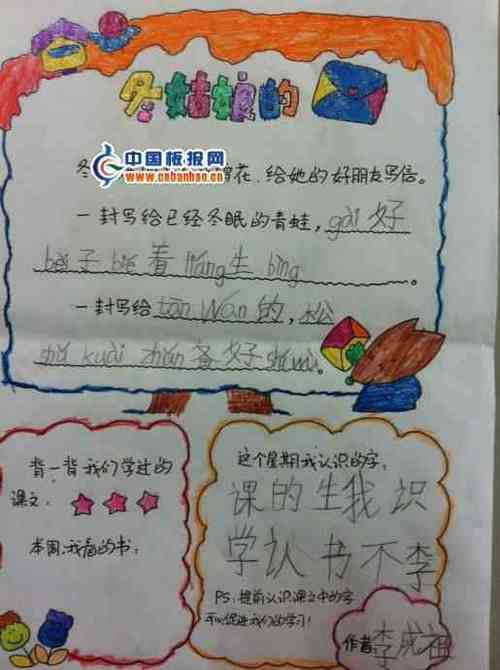 冬姑娘的
中国板报网
www.cnbanbao.cn
冬 花、给她的好朋友写信。
一封写给已经冬眠的青蛙，gài 好
bèi 子 bié 着 liáng 生 bìng 。
一封写给 tān wán 的，松
shǔ kuài zhǔn 备 好 shí wù。
背一背我们学过的
课文：☆ ☆ ☆
本周，我看的书：
这个星期我认识的字：
课的生我识
学认书不李
PS：提前认识课文中的字
可以促进我们的学习！
作者李成祖